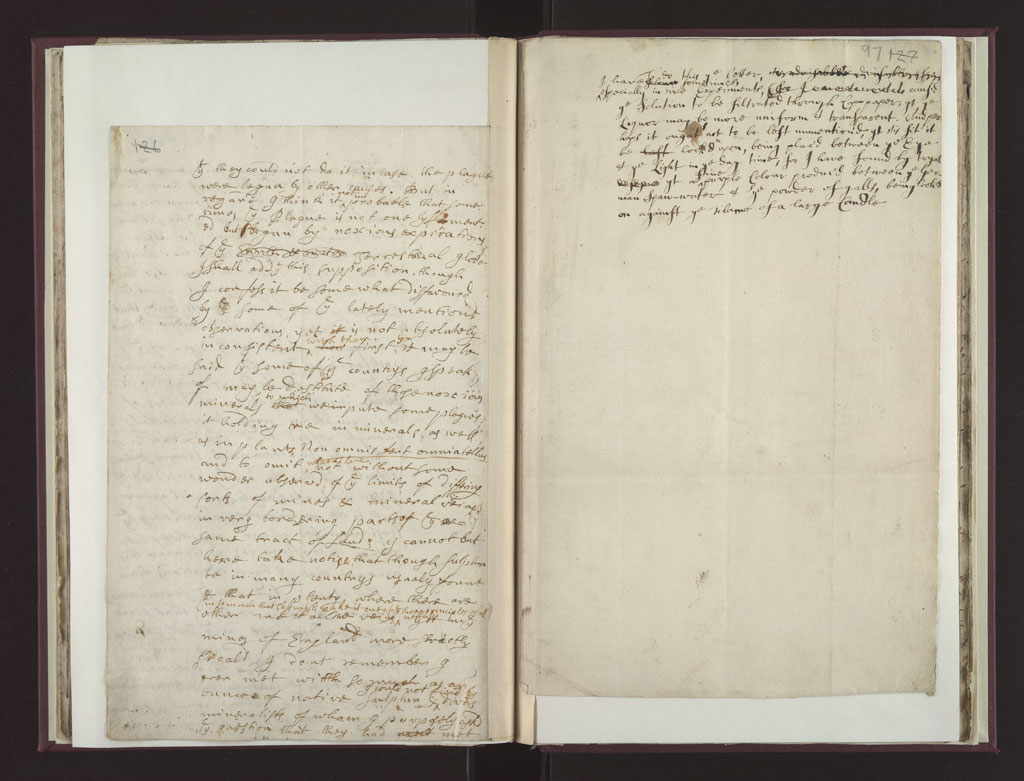 126
yt they could not do it in case the plague
were began by other causes. But in
regard I think it probable that some
times ye Plague is not onely foment
ed but began by noxious expirations
of ye terrestrial globe
I shall add to this supposition, though
I confess it be somewhat disfavoured
by some of ye lately mentiond
observations, yet it is not absolutely
inconsistent, with them. first, it may be
said yt some of ye countrys I speak
of may be destitute of those noxious
minerals to which we impute some plagues
it holding true in minerals, as well
as in plants Non omnis fert omnia tellus
and to omit what I have not without some
wonder observd of ye limits of differing
sorts of mines & mineral veines
in very bordering parts of ye
same tract of land; I cannot but
here take notise that though sulphur
be in many countrys usualy found
& that in plenty, where there are
other metalline veins, yet in ye
mines of England more strictly
speakt, I dont remember I
ever met with so much as an
ounce of native sulphur
mineralists of whom I purposely askd
ye question that they had not met
97 127
To do this ye better,
I have sometimes
especially in nice Experiments, causd
ye solution to be filtrated through Cap-paper, yt ye
Liquor may be more uniform & transparent. And per
haps it ought not to be left unmentiond, yt tis fit it
be lookd upon, being plac'd between ye Eye
& ye Light in ye day time, for I have found by tryal
yt a fine purple Colour producd between ye Ger
man Spaw-water & ye powder of galls, being lookd
on against ye flame of a large Candle